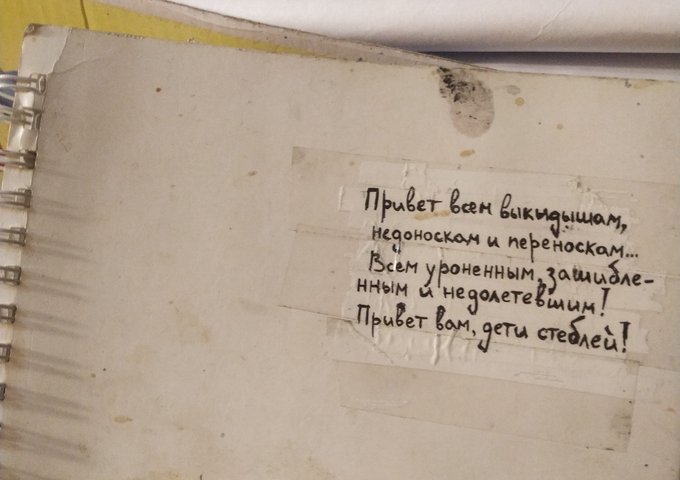 Привет всем выкыдышам,
недоноскам и переноскам...
Всем уроненным, зашибле-
нным и недолетевшим!
Привет вам, дети стеблей!